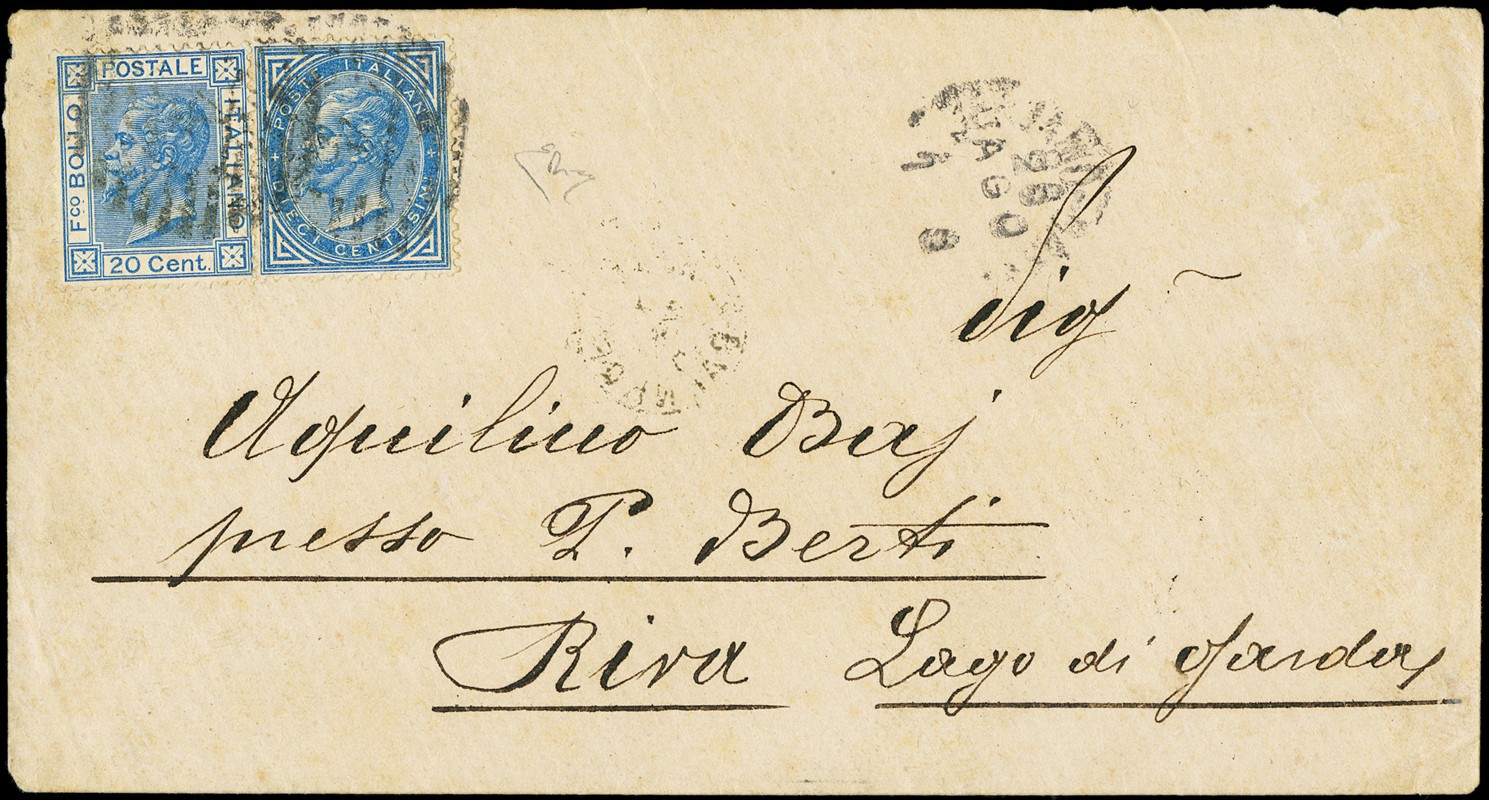 POSTALE
Fco BOLLO
ITALIANO
20 Cent.
POSTE ITALIANE
DIECI CENTESIMI
26
AGO
Sig
Aquilino Baj
presso P. Berti
Riva Lago di Garda